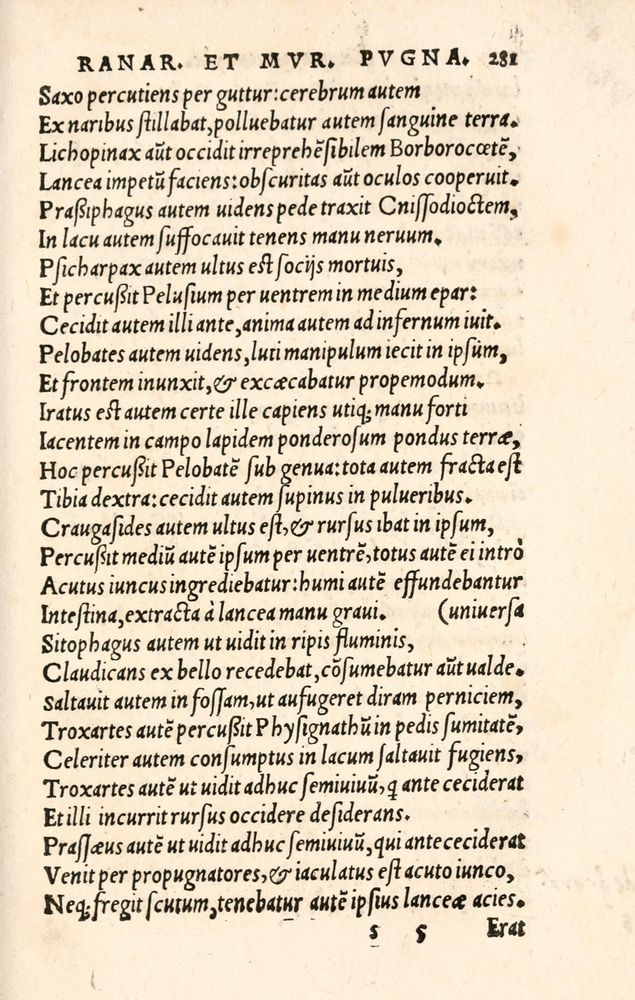 RANAR. ET MVR. PVGNA. 281
Saxo percutiens per guttur: cerebrum autem
Ex naribus ſtillabat, polluebatur autem ſanguine terra.
Lichopinax aũt occidit irreprehẽſibilem Borborocœtẽ,
Lancea impetũ faciens: obſcuritas aũt oculos cooperuit.
Praßiphagus autem uidens pede traxit Cniſſodioctem,
In lacu autem ſuffocauit tenens manu neruum.
Pſicharpax autem ultus eſt ſocijs mortuis,
Et percußit Peluſium per uentrem in medium epar:
Cecidit autem illi ante, anima autem ad infernum iuit.
Pelobates autem uidens, luti manipulum iecit in ipſũm,
Et frontem inunxit, & excæcabatur propemodum.
Iratus eſt autem certe ille capiens utiq; manu forti
Iacentem in campo lapidem ponderoſum pondus terræ,
Hoc percußit Pelobatẽ ſub genua: tota autem fracta eſt
Tibia dextra: cecidit autem ſupinus in pulueribus.
Craugaſides autem ultus eſt, & rurſus ibat in ipſum,
Percußit mediũ autẽ ipſum per uentrẽ, totus autẽ ei intrò
Acutus iuncus ingrediebatur: humi autẽ effundebantur
Inteſtina, extracta à lancea manu graui. (uniuerſa
Sitophagus autem ut uidit in ripis fluminis,
Claudicans ex bello recedebat, cõſumebatur aũt ualde.
Saltauit autem in foſſam, ut aufugeret diram perniciem,
Troxartes autẽ percußit Phyſignathũ in pedis ſumitatẽ,
Celeriter autem conſumptus in lacum ſaltauit fugiens,
Troxartes autẽ ut uidit adhuc ſemiuiuũ, q ante ceciderat
Et illi incurrit rurſus occidere deſiderans.
Praſſæus autẽ ut uidit adhuc ſemiuiuũ, qui ante ceciderat
Venit per propugnatores, & iaculatus eſt acuto iunco,
Neq; fregit ſcutum, tenebatur autẽ ipſius lanceæ acies.
s 5 Erat